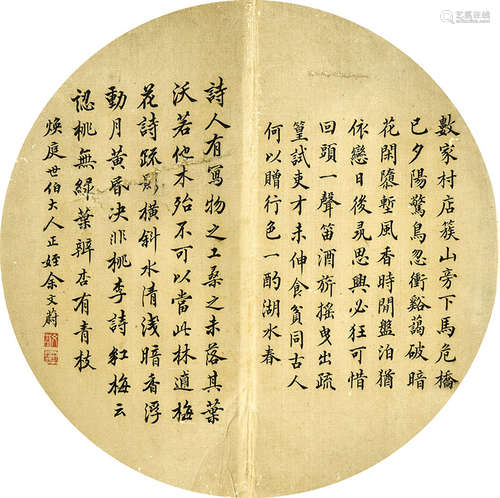 數家村店簇山旁下馬危橋
已夕陽驚鳥忽衝谿藹破暗
花閑墮塹風香時閒盤泊猶
依戀日後尋思興必狂可惜
回頭一聲笛酒旂搖曳出疏
篁試吏才未伸食貧同古人
何以贈行色一酌湖水春
詩人有寫物之工桑之未落其葉
沃若他木殆不可以當此林逋梅
花詩疏影橫斜水清淺暗香浮
動月黃昏決非桃李詩紅梅云
認桃無綠葉辨杏有青枝
煥庭世伯大人正 姪余文蔚